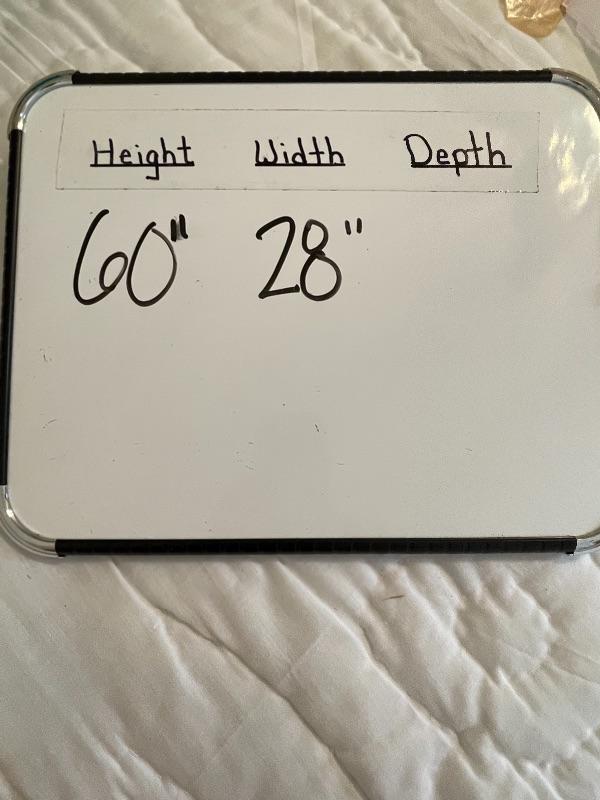 Height Width Depth
60" 28"